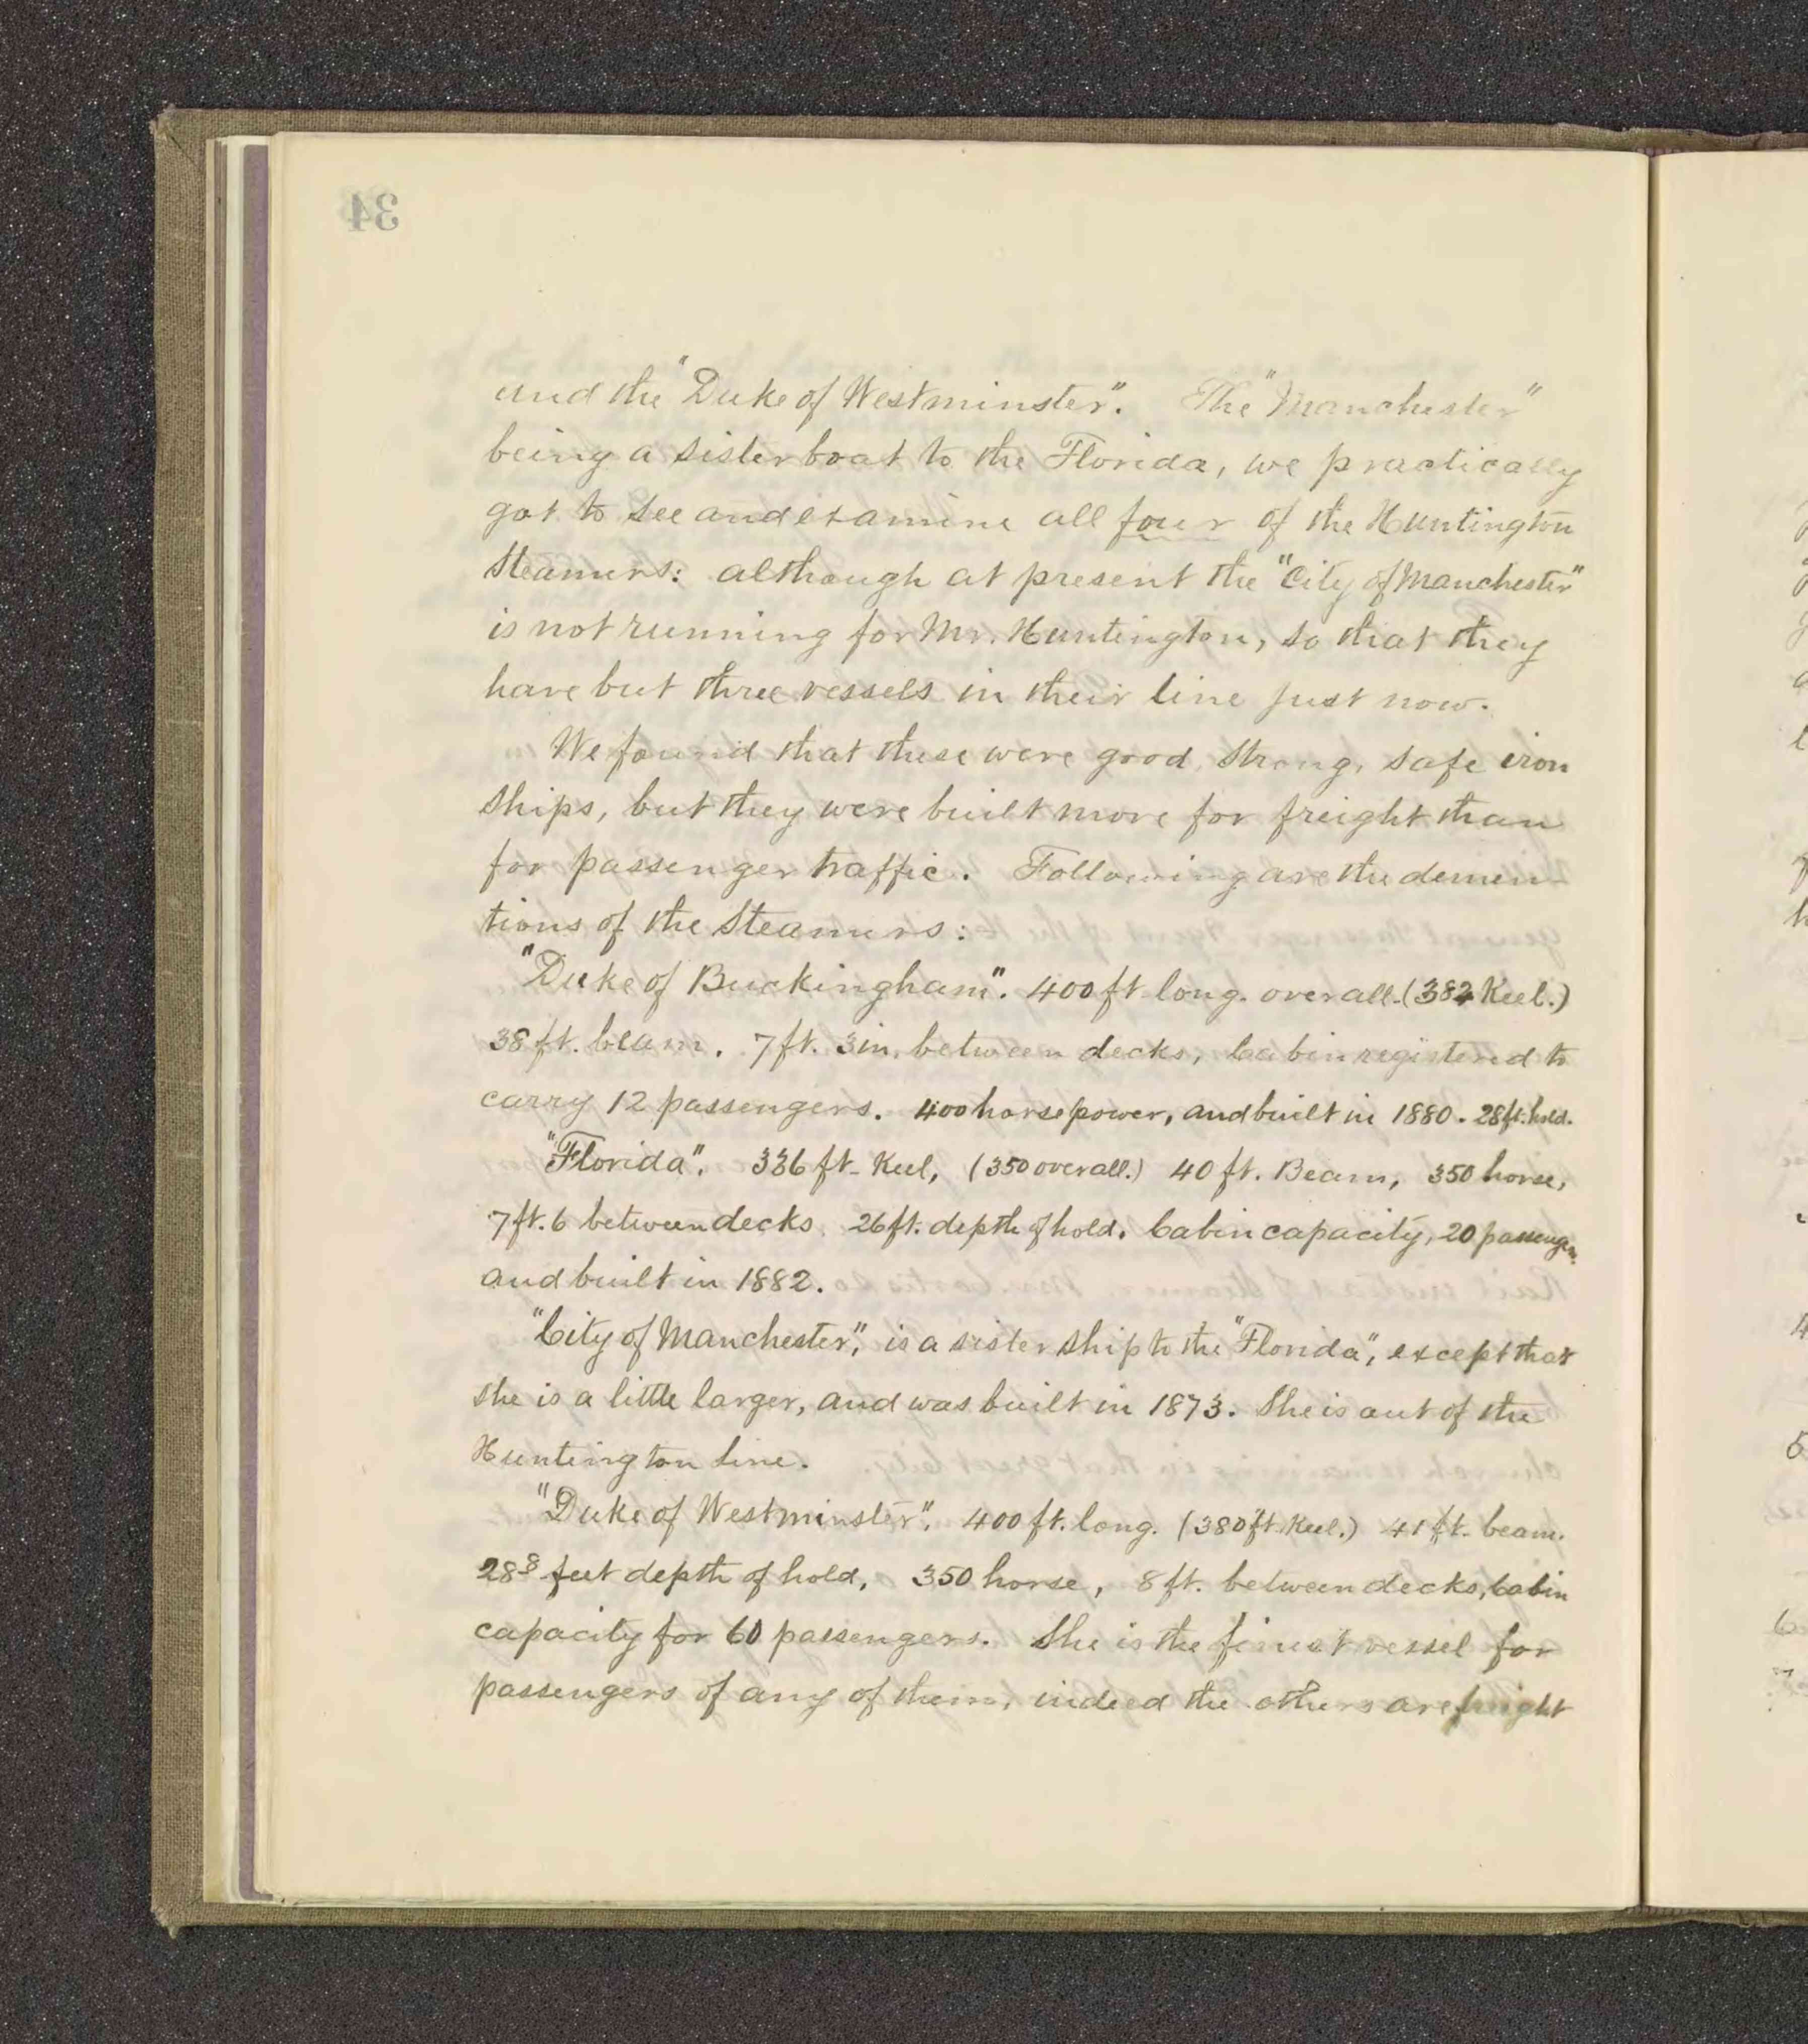 and the "Duke of Westminster". The "Manchester"
being a sister boat to the Florida, we practically
got to see and examine all four of the Huntington
Steamers: although at present the "City of Manchester"
is not running for Mr. Huntington, so that they
have but three vessels in their line just now.
We found that these were good, strong, safe iron
ships, but they were built more for freight than
for passenger traffic. Following are the demen-
tions of the Steamers:
"Duke of Buckingham". 400 ft. long. over all. (382 Keel.)
38 ft. beam. 7 ft. 3 in. between decks, Cabin registered to
carry 12 passengers. 400 horse power, and built in 1880. 28 ft. hold.
"Florida". 336 ft. Keel, (350 over all.) 40 ft. Beam, 350 horse,
7 ft. 6 between decks. 26 ft. depth of hold. Cabin capacity, 20 passengers.
and built in 1882.
"City of Manchester", is a sister ship to the "Florida", except that
she is a little larger, and was built in 1873. She is out of the
Huntington line.
"Duke of Westminster". 400 ft. long. (380 ft. Keel.) 41 ft. beam.
28⁸ feet depth of hold, 350 horse, 8 ft. between decks, Cabin
capacity for 60 passengers. She is the finest vessel for
passengers of any of them, indeed the others are freight